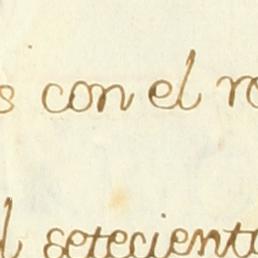 s con el
l setecient